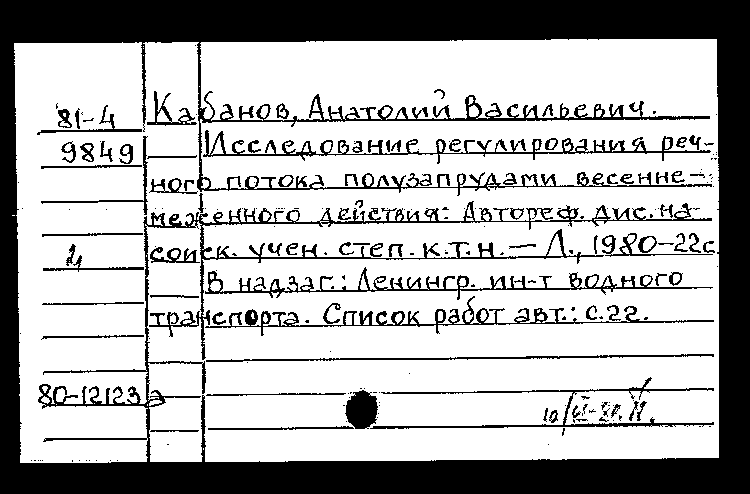 81-4 Кабанов, Анатолий Васильевич.
9849 Исследование регулирования реч-
ного потока полузапрудами весенне-
меженного действия: Автореф. дис. на
соиск. учен. степ. к.т.н. — Л., 1980-22с
В надзаг.: Ленингр. ин-т водного
транспорта. Список работ авт.: с.22.
80-12123а